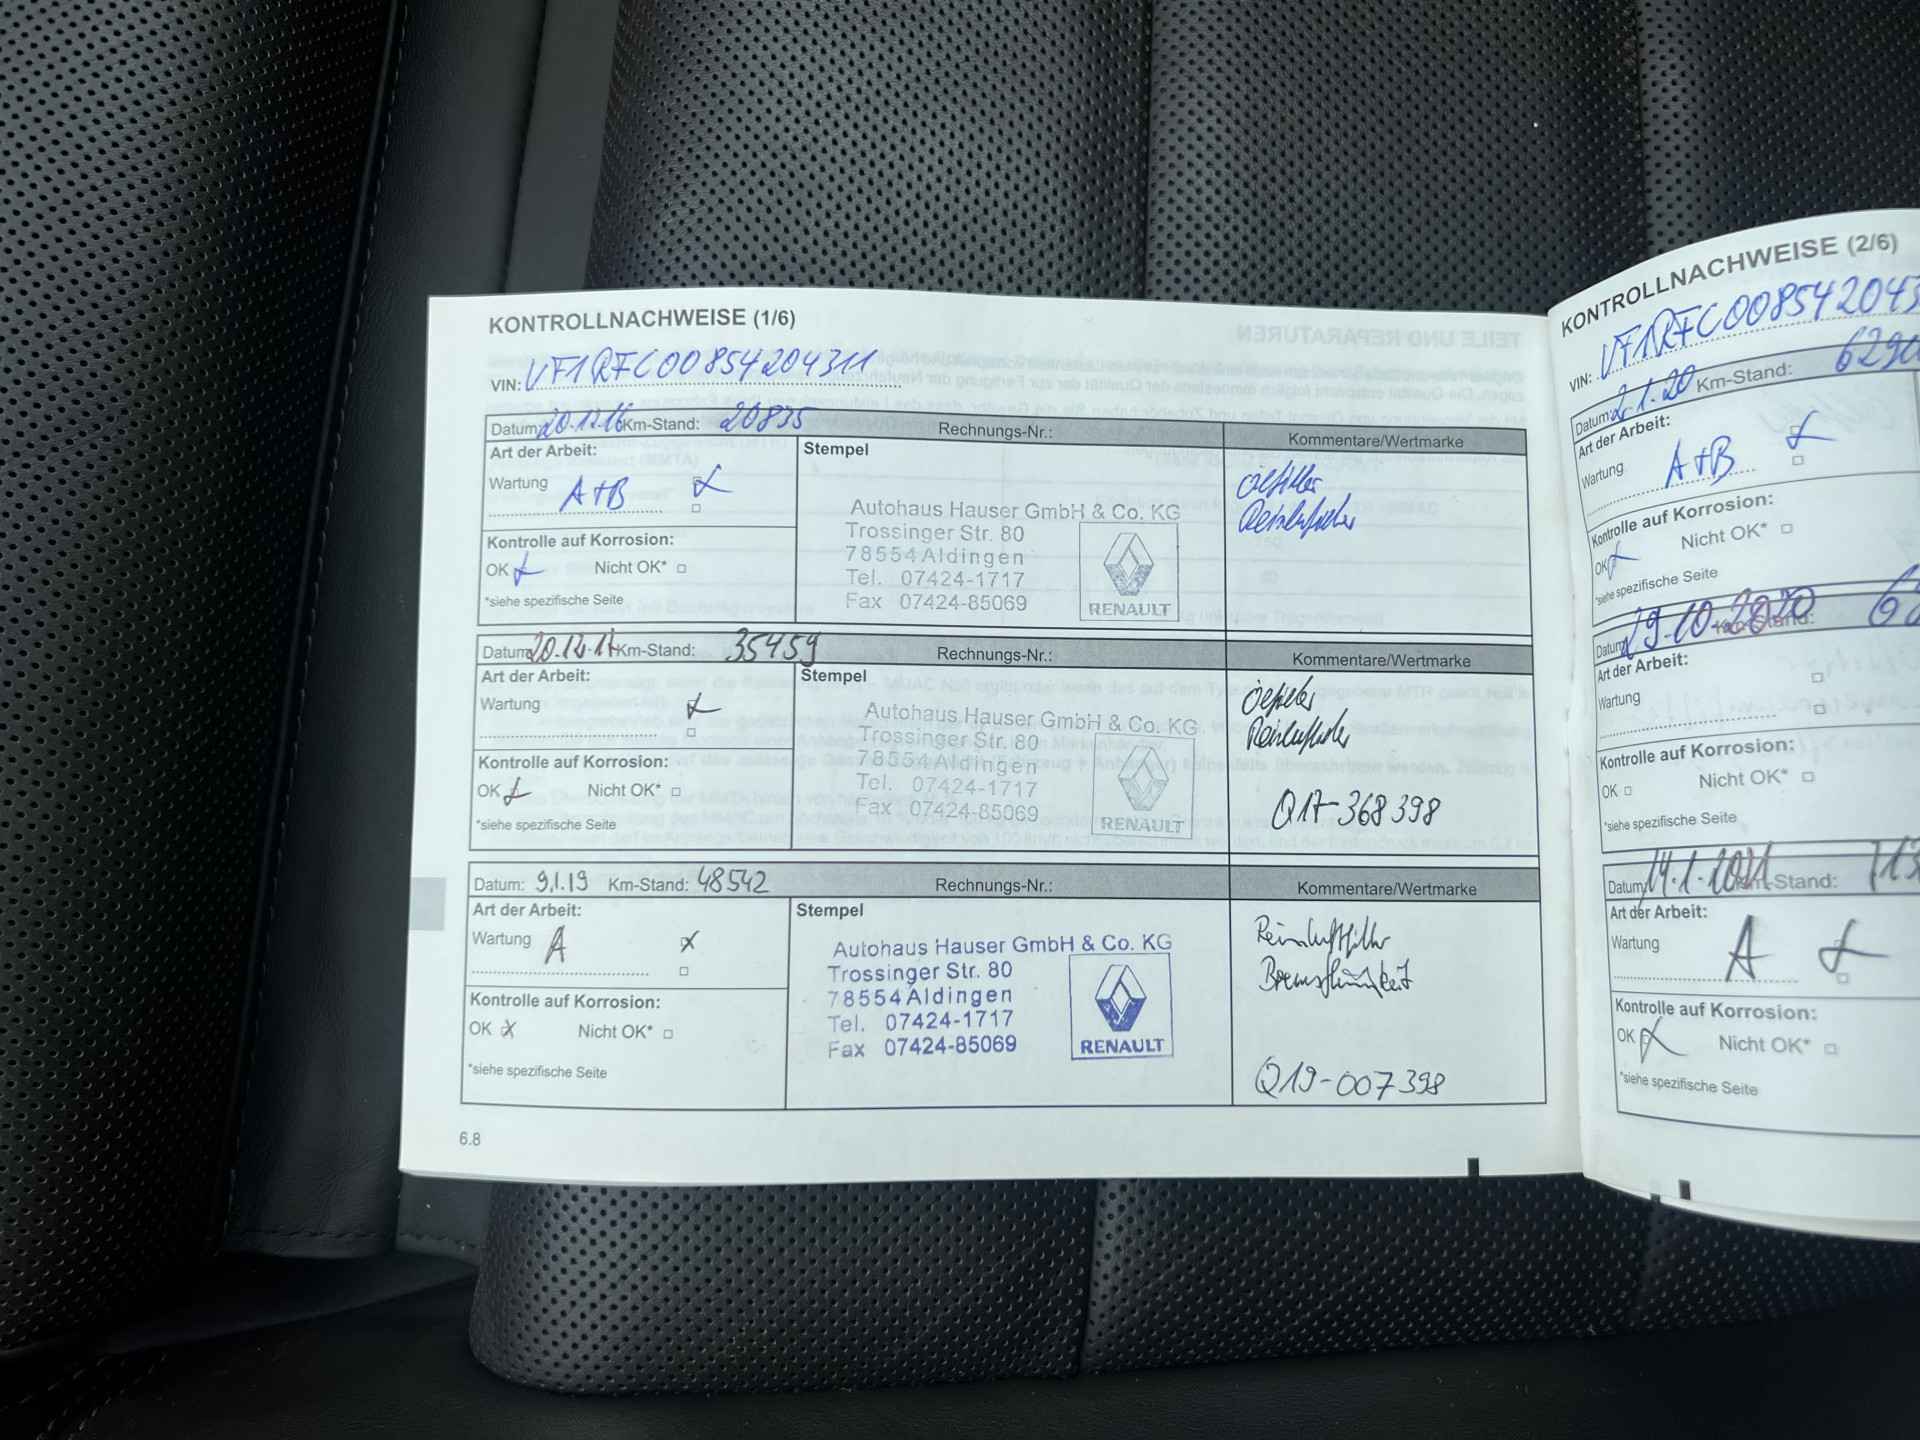 KONTROLLNACHWEISE (1/6)
VIN: VF1RFC00854204311
Datum: 20.12.16 Km-Stand: 20835 Rechnungs-Nr.: Kommentare/Wertmarke
Art der Arbeit:
Wartung A+B
Kontrolle auf Korrosion:
OK Nicht OK* □
*siehe spezifische Seite
Stempel
Autohaus Hauser GmbH & Co. KG
Trossinger Str. 80
78554 Aldingen
Tel. 07424-1717
Fax 07424-85069
RENAULT
Oelfilter
Reinluftfilter
Datum: 20.12.17 Km-Stand: 35459 Rechnungs-Nr.: Kommentare/Wertmarke
Art der Arbeit:
Wartung
Kontrolle auf Korrosion:
OK Nicht OK* □
*siehe spezifische Seite
Stempel
Autohaus Hauser GmbH & Co. KG
Trossinger Str. 80
78554 Aldingen
Tel. 07424-1717
Fax 07424-85069
RENAULT
Oelfilter
Reinluftfilter
Q17-368398
Datum: 9.1.19 Km-Stand: 48542 Rechnungs-Nr.: Kommentare/Wertmarke
Art der Arbeit:
Wartung A
Kontrolle auf Korrosion:
OK Nicht OK* □
*siehe spezifische Seite
Stempel
Autohaus Hauser GmbH & Co. KG
Trossinger Str. 80
78554 Aldingen
Tel. 07424-1717
Fax 07424-85069
RENAULT
Reinluftfilter
Bremsflüssigkeit
Q19-007398
6.8
KONTROLLNACHWEISE (2/6)
VIN: VF1RFC008542043
Datum: 2.1.20 Km-Stand: 6290
Art der Arbeit:
Wartung A+B
Kontrolle auf Korrosion:
OK Nicht OK* □
*siehe spezifische Seite
Datum: 29.10.2020 Km-Stand:
Art der Arbeit:
Wartung
Kontrolle auf Korrosion:
OK □ Nicht OK* □
*siehe spezifische Seite
Datum: 14.1.2021 Km-Stand:
Art der Arbeit:
Wartung A
Kontrolle auf Korrosion:
OK Nicht OK* □
*siehe spezifische Seite